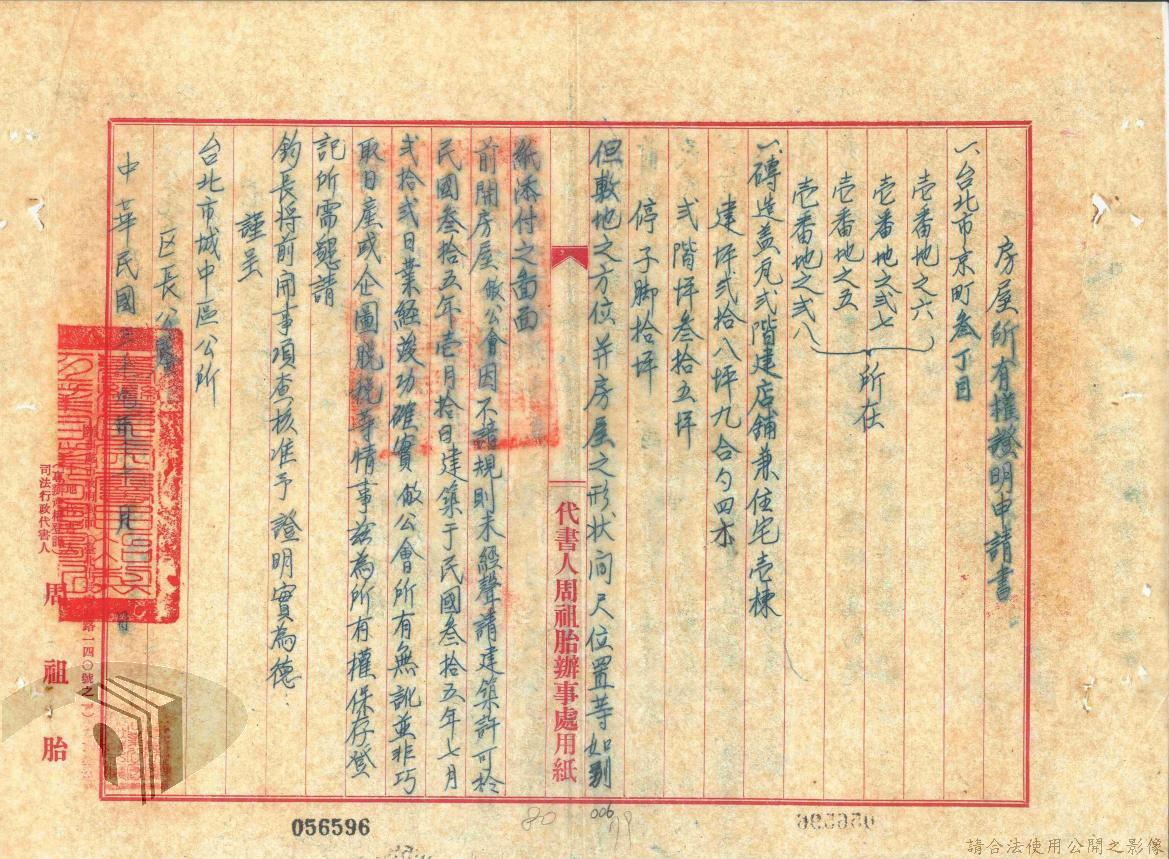 房屋所有權證明申請書
一、台北市京町叁丁目
壱番地之六
壱番地之弍七
壱番地之五
壱番地之弍八
所在
一、磚造盖瓦弍階建店舖兼住宅壱棟
建坪弍拾八坪九合勺四才
弍階坪叁拾五坪
停子脚拾坪
但敷地之方位并房屋之形狀间尺位置等如别
紙添付之圖面
前開房屋 敝公會因不諳規則未經聲請建築許可於
民國叁拾五年壱月拾日建築于民國叁拾五年七月
弍拾弍日業經竣功確實 敝公會所有無訛並非巧
取日產或企圖脱税等情事兹為所有權保存登
記所需懇請
鈞長将前開事項查核准予 證明實為德
謹呈
台北市城中區公所
区長公
中華民國三十 年 月 日
代書人周祖胎辦事處用紙
司法行政代書人
周祖胎
路一四〇號之
056596
80
006
79
056596
請合法使用公開之影像